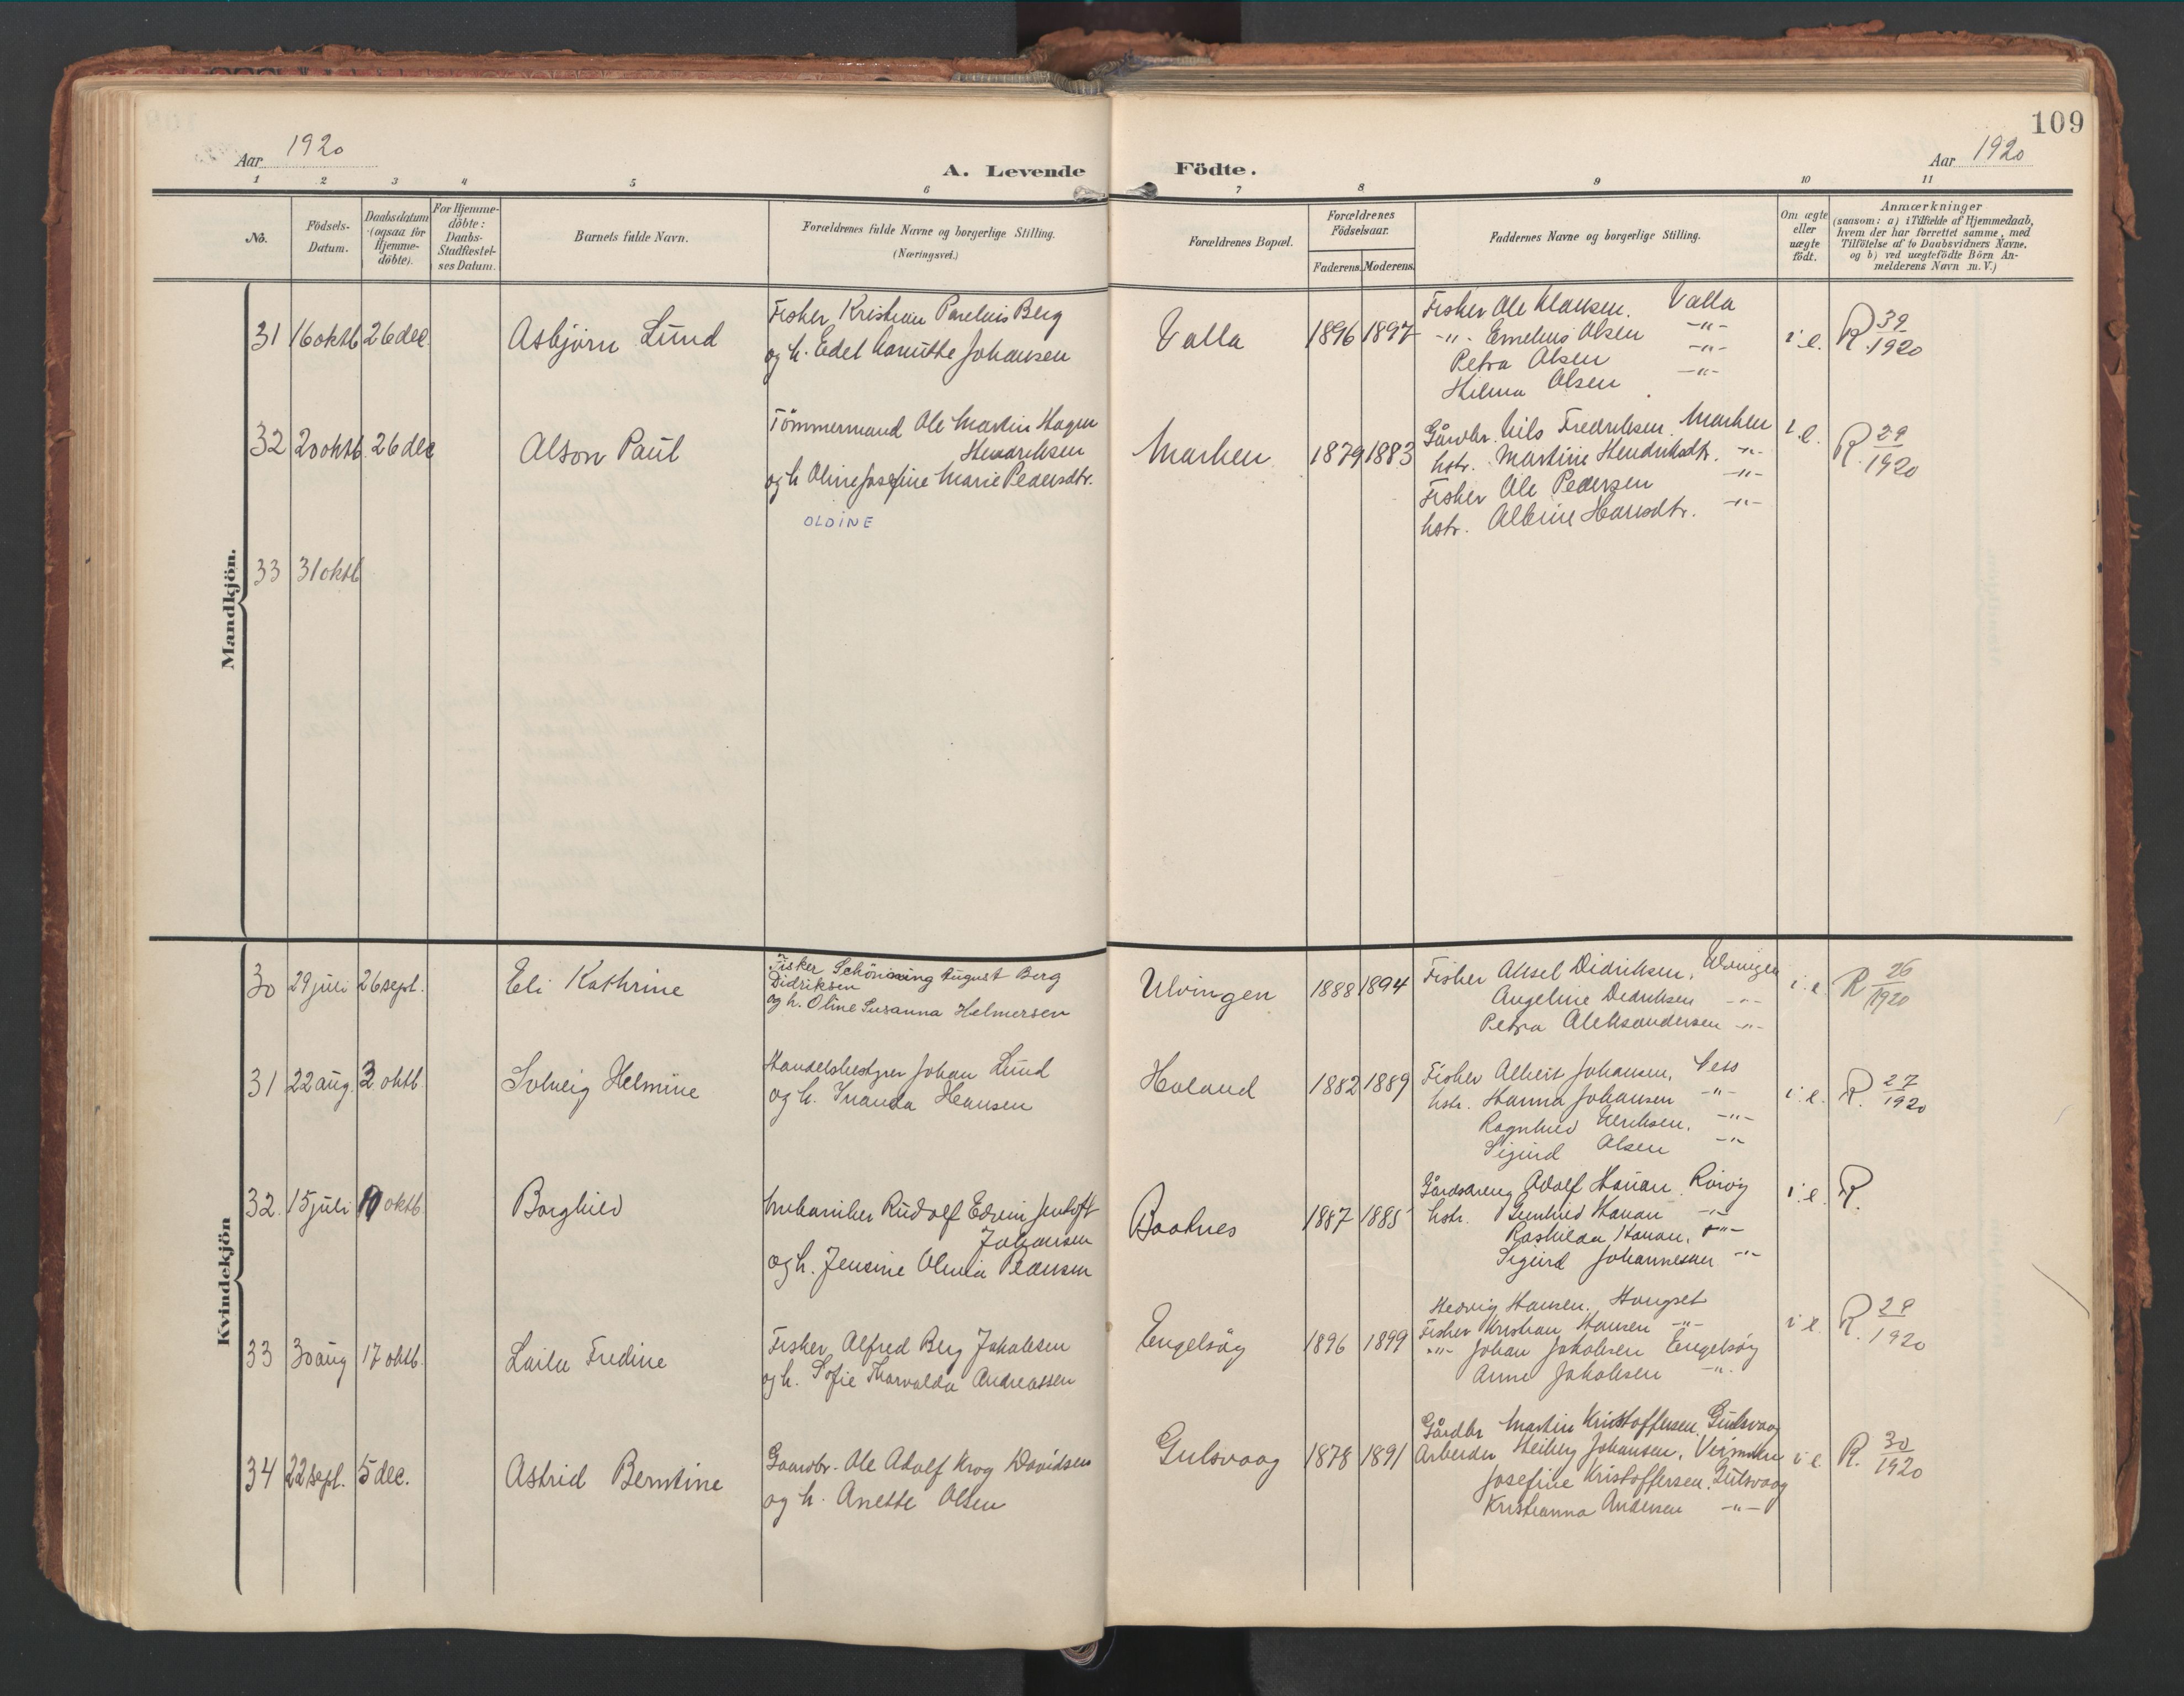 109
Aar 1920
A. Levende Födte.
Aar 1920
1 2 3 4 5 6 7 8 9 10 11
No.
Födsels-Datum.
Daabsdatum (ogsaa for Hjemme-döbte).
For Hjemme-döbte: Daabs-Stadfæstel-ses Datum.
Barnets fulde Navn.
Forældrenes fulde Navne og borgerlige Stilling.
(Næringsvei.)
Forældrenes Bopæl.
Forældrenes Födselsaar.
Faderens. Moderens.
Faddernes Navne og borgerlige Stilling.
Om ægte eller uægte födt.
Anmærkninger
(saasom: a) i Tilfælde af Hjemmedaab,
hvem der har forrettet samme, med
Tilföielse af to Daabsvidners Navne.
og b) ved uægtefödte Börn An-
melderens Navn m. V.)
Mandkjön.
31 16 oktb 26 dec. Asbjörn Lund
Fisker Kristian Parelius Berg
og h. Edel Hanutte Johansen
Valla 1896 1897
Fisker Ole Klausen. Valla
-"- Emelius Olsen -"-
Petra Olsen -"-
Hilma Olsen -"-
i e. R. 39/1920
32 20 oktb. 26 dec Alson Paul
Tömmermand Ole Martin Hagen
Hendriksen
og h Oline Josefine Marie Pedersdtr.
OLDINE
Marken 1879 1883
Gårdbr. Nils Fredriksen. Marken
hstr. Martine Hendriksdtr. -"-
Fisker Ole Pedersen -"-
hstr. Albine Hansdtr. -"-
i e. R. 29/1920
33 31 oktb
Kvindekjön
30 29 juli 26 sept. Eli Kathrine
Fisker Schönning August Berg
Didriksen
og h. Oline Susanna Helmersen
Ulvingen 1888 1894
Fisker Aksel Didriksen, Ulvingen
Angeline Didriksen -"-
Petra Aleksandersen -"-
i e. R 26/1920
31 22 aug. 3 oktb Solveig Helmine
Handelsbestyrer Johan Lund
og h. Inanda Hansen
Holand 1882 1889
Fisker Albert Johansen, Vess
hstr. Hanna Johansen -"-
Ragnhild Ulriksen. -"-
Sigurd Olsen -"-
i. e. R. 27/1920
32. 15 juli 10 oktb. Borghild
Mekaniker Rudolf Edvin Jentoft
Johansen
og h. Jensine Olivia Pedersen
Baaknes 1887 1885
Gårdsdreng Adolf Hanan. Rörvig
hstr. Gunhild Hanan -"-
Raskilda Hanan. -"-
Sigurd Johannesen -"-
i e. R.
33 30 aug 17 oktb. Laila Fredine
Fisker Alfred Berg Jakobsen
og h. Sofie Thorvalda Andreassen
Engelsöy 1896 1899
Hedvig Hansen. Haugset
Fisker Kristian Hansen -"-
-"- Johan Jakobsen Engelsöy
Anne Jakobsen -"-
i e. R. 28/1920
34 22 sept. 5 dec. Astrid Berntine
Gaardbr. Ole Adolf Krog Davidsen
og h. Anette Olsen
Gulsvaag 1878 1891
Gårdbr Martin Kristoffersen. Gulsvaag
Arbeider Heiberg Johansen,
Josefine Kristoffersen. Gulsvaag
Kristianna Andersen -"-
i e. R. 30/1920